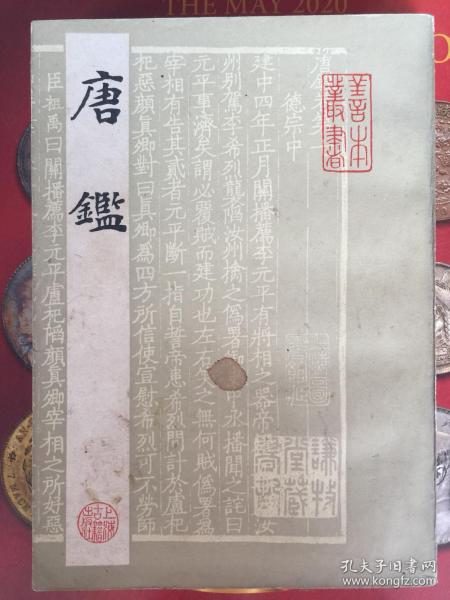 THE MAY 2020
唐鑑
善本叢書
德宗中
建中四年正月關播薦李元平有將相之器帝
州別駕李希烈襲陷汝州擒之僞署
元平事濟矣謂必覆賊而建功也左右笑之無何賊僞署爲
宰相有告其貳者元平斷一指自誓帝患希烈問計於盧杞
杞惡顏真卿對曰真卿爲四方所信使宣慰希烈可不勞師
臣祖禹曰關播薦李元平盧杞陷顏真卿宰相之所好惡
謙牧堂藏書記
上海古籍出版社
孔夫子旧书网
www.kongfz.com